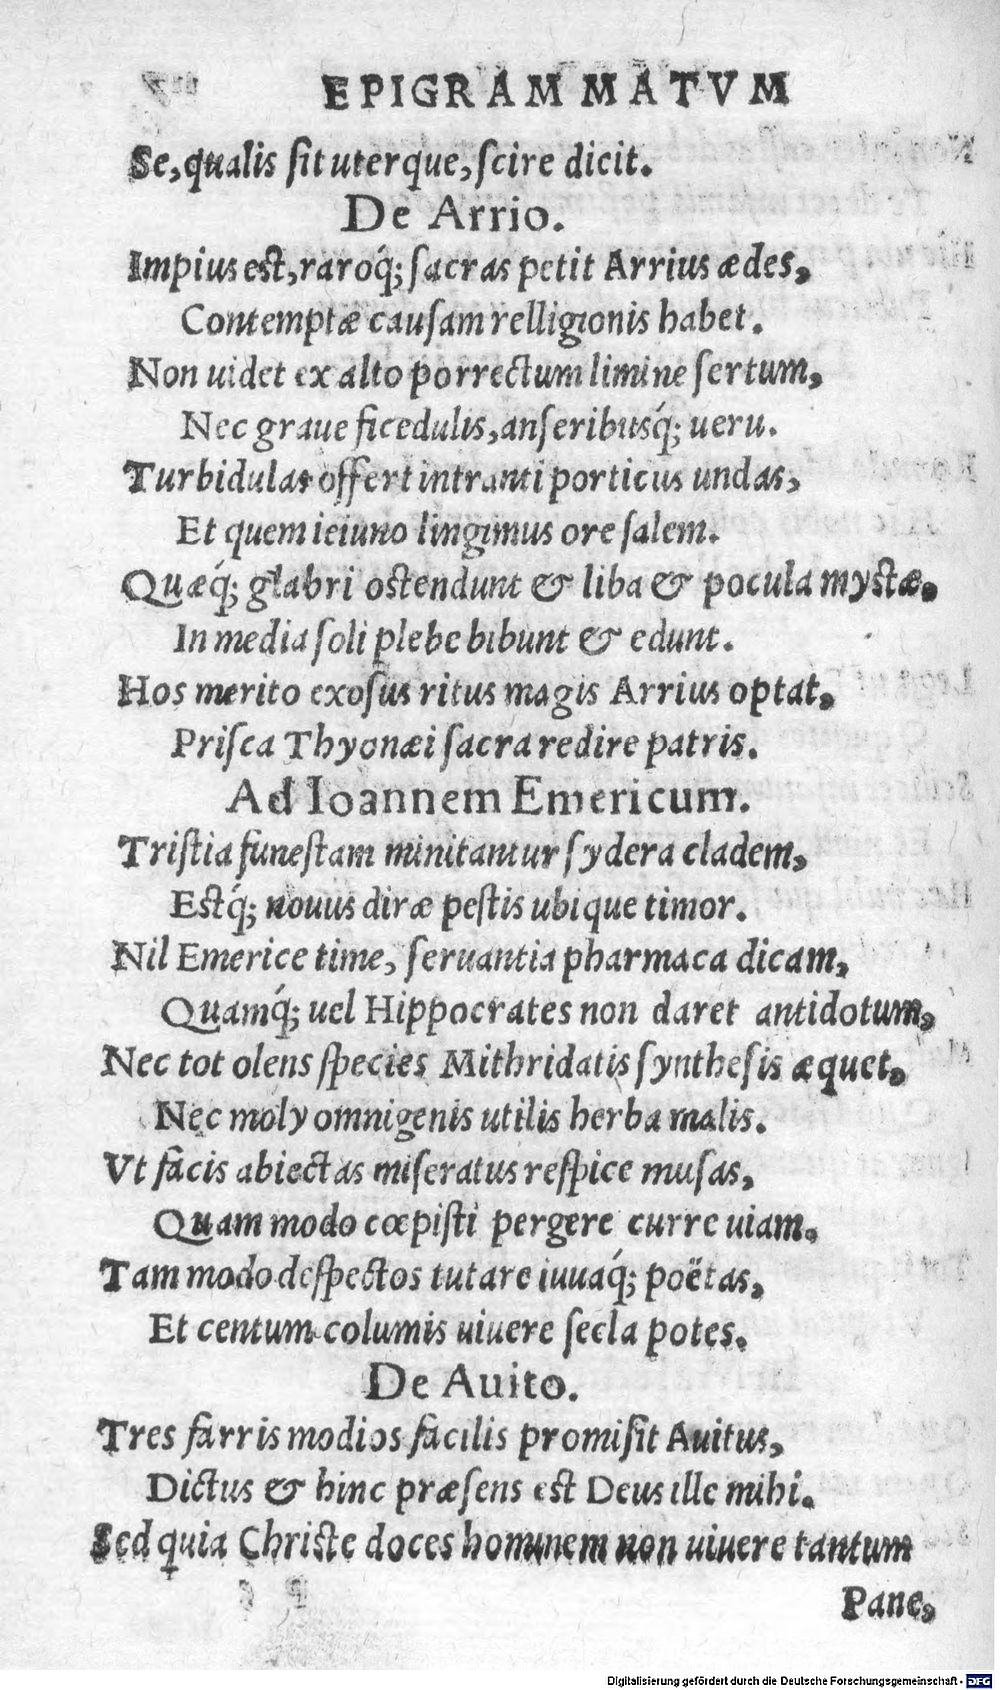 EPIGRAMMATVM
Se, qualis ſit uterque, ſcire dicit.
De Arrio.
Impius est, raroq́; ſacras petit Arrius ædes,
Contemptæ cauſam relligionis habet.
Non uidet ex alto porrectum limine ſertum,
Nec graue ficedulis, anſeribusq́; ueru.
Turbidulas offert intranti porticus undas,
Et quem ieiuno lingimus ore ſalem.
Quæq́; glabri ostendunt & liba & pocula mystæ,
In media ſoli plebe bibunt & edunt.
Hos merito exoſus ritus magis Arrius optat,
Priſca Thyonæi ſacra redire patris.
Ad Ioannem Emericum.
Triſtia funeſtam minitantur ſydera cladem,
Estq́; nouus diræ peſtis ubique timor.
Nil Emerice time, ſeruantia pharmaca dicam,
Quamq́; uel Hippocrates non daret antidotum,
Nec tot olens ſpecies Mithridatis ſyntheſis æquet,
Nec moly omnigenis utilis herba malis.
Vt facis abiectas miſeratus reſpice muſas,
Quam modo cœpiſti pergere curre uiam.
Tam modo deſpectos tutare iuuaq́; poëtas,
Et centum columis uiuere ſecla potes.
De Auito.
Tres farris modios facilis promiſit Auitus,
Dictus & hinc præſens est Deus ille mihi.
Sed quia Christe doces hominem non uiuere tantum
Pane,
Digitalisierung gefördert durch die Deutsche Forschungsgemeinschaft - DFG